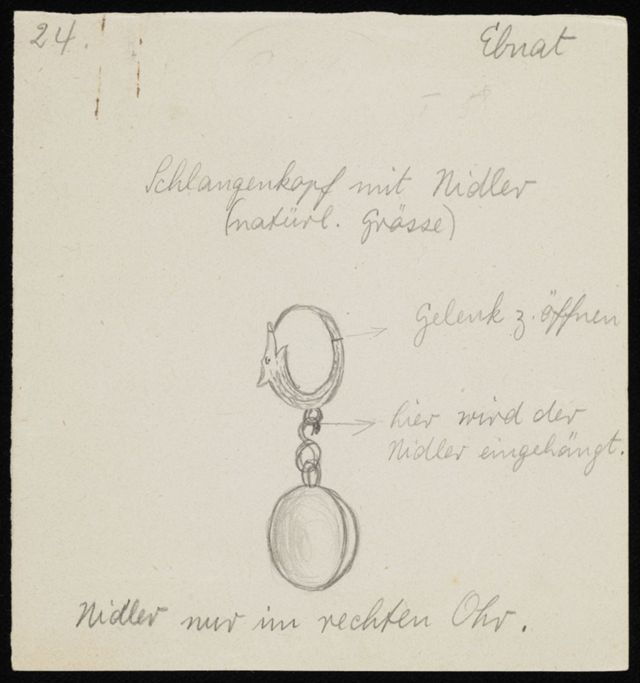 24.
Ebnat
Schlangenkopf mit Nidler
(natürl. Grösse)
Gelenk z. öffnen
hier wird der
Nidler eingehängt.
Nidler nur im rechten Ohr.